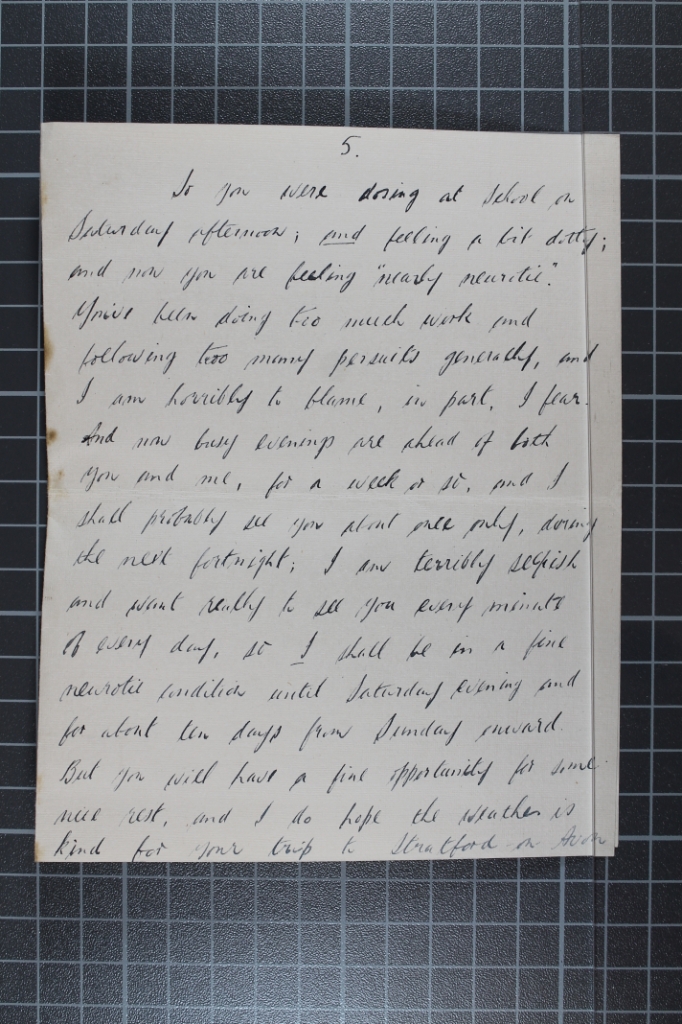 5.
So you were dosing at school on
Saturday afternoon; and feeling a bit dotty;
and now you are feeling "nearly neurotic".
You've been doing too much work and
following too many persuits generally, and
I am horribly to blame, in part, I fear.
And now busy evenings are ahead of both
you and me, for a week or so, and I
shall probably see you about once only, during
the next fortnight; I am terribly selfish
and want really to see you every minute
of every day, so I shall be in a fine
neurotic condition until Saturday evening and
for about ten days from Sunday onward.
But you will have a fine opportunity for some
nice rest, and I do hope the weather is
kind for your trip to Stratford-on Avon